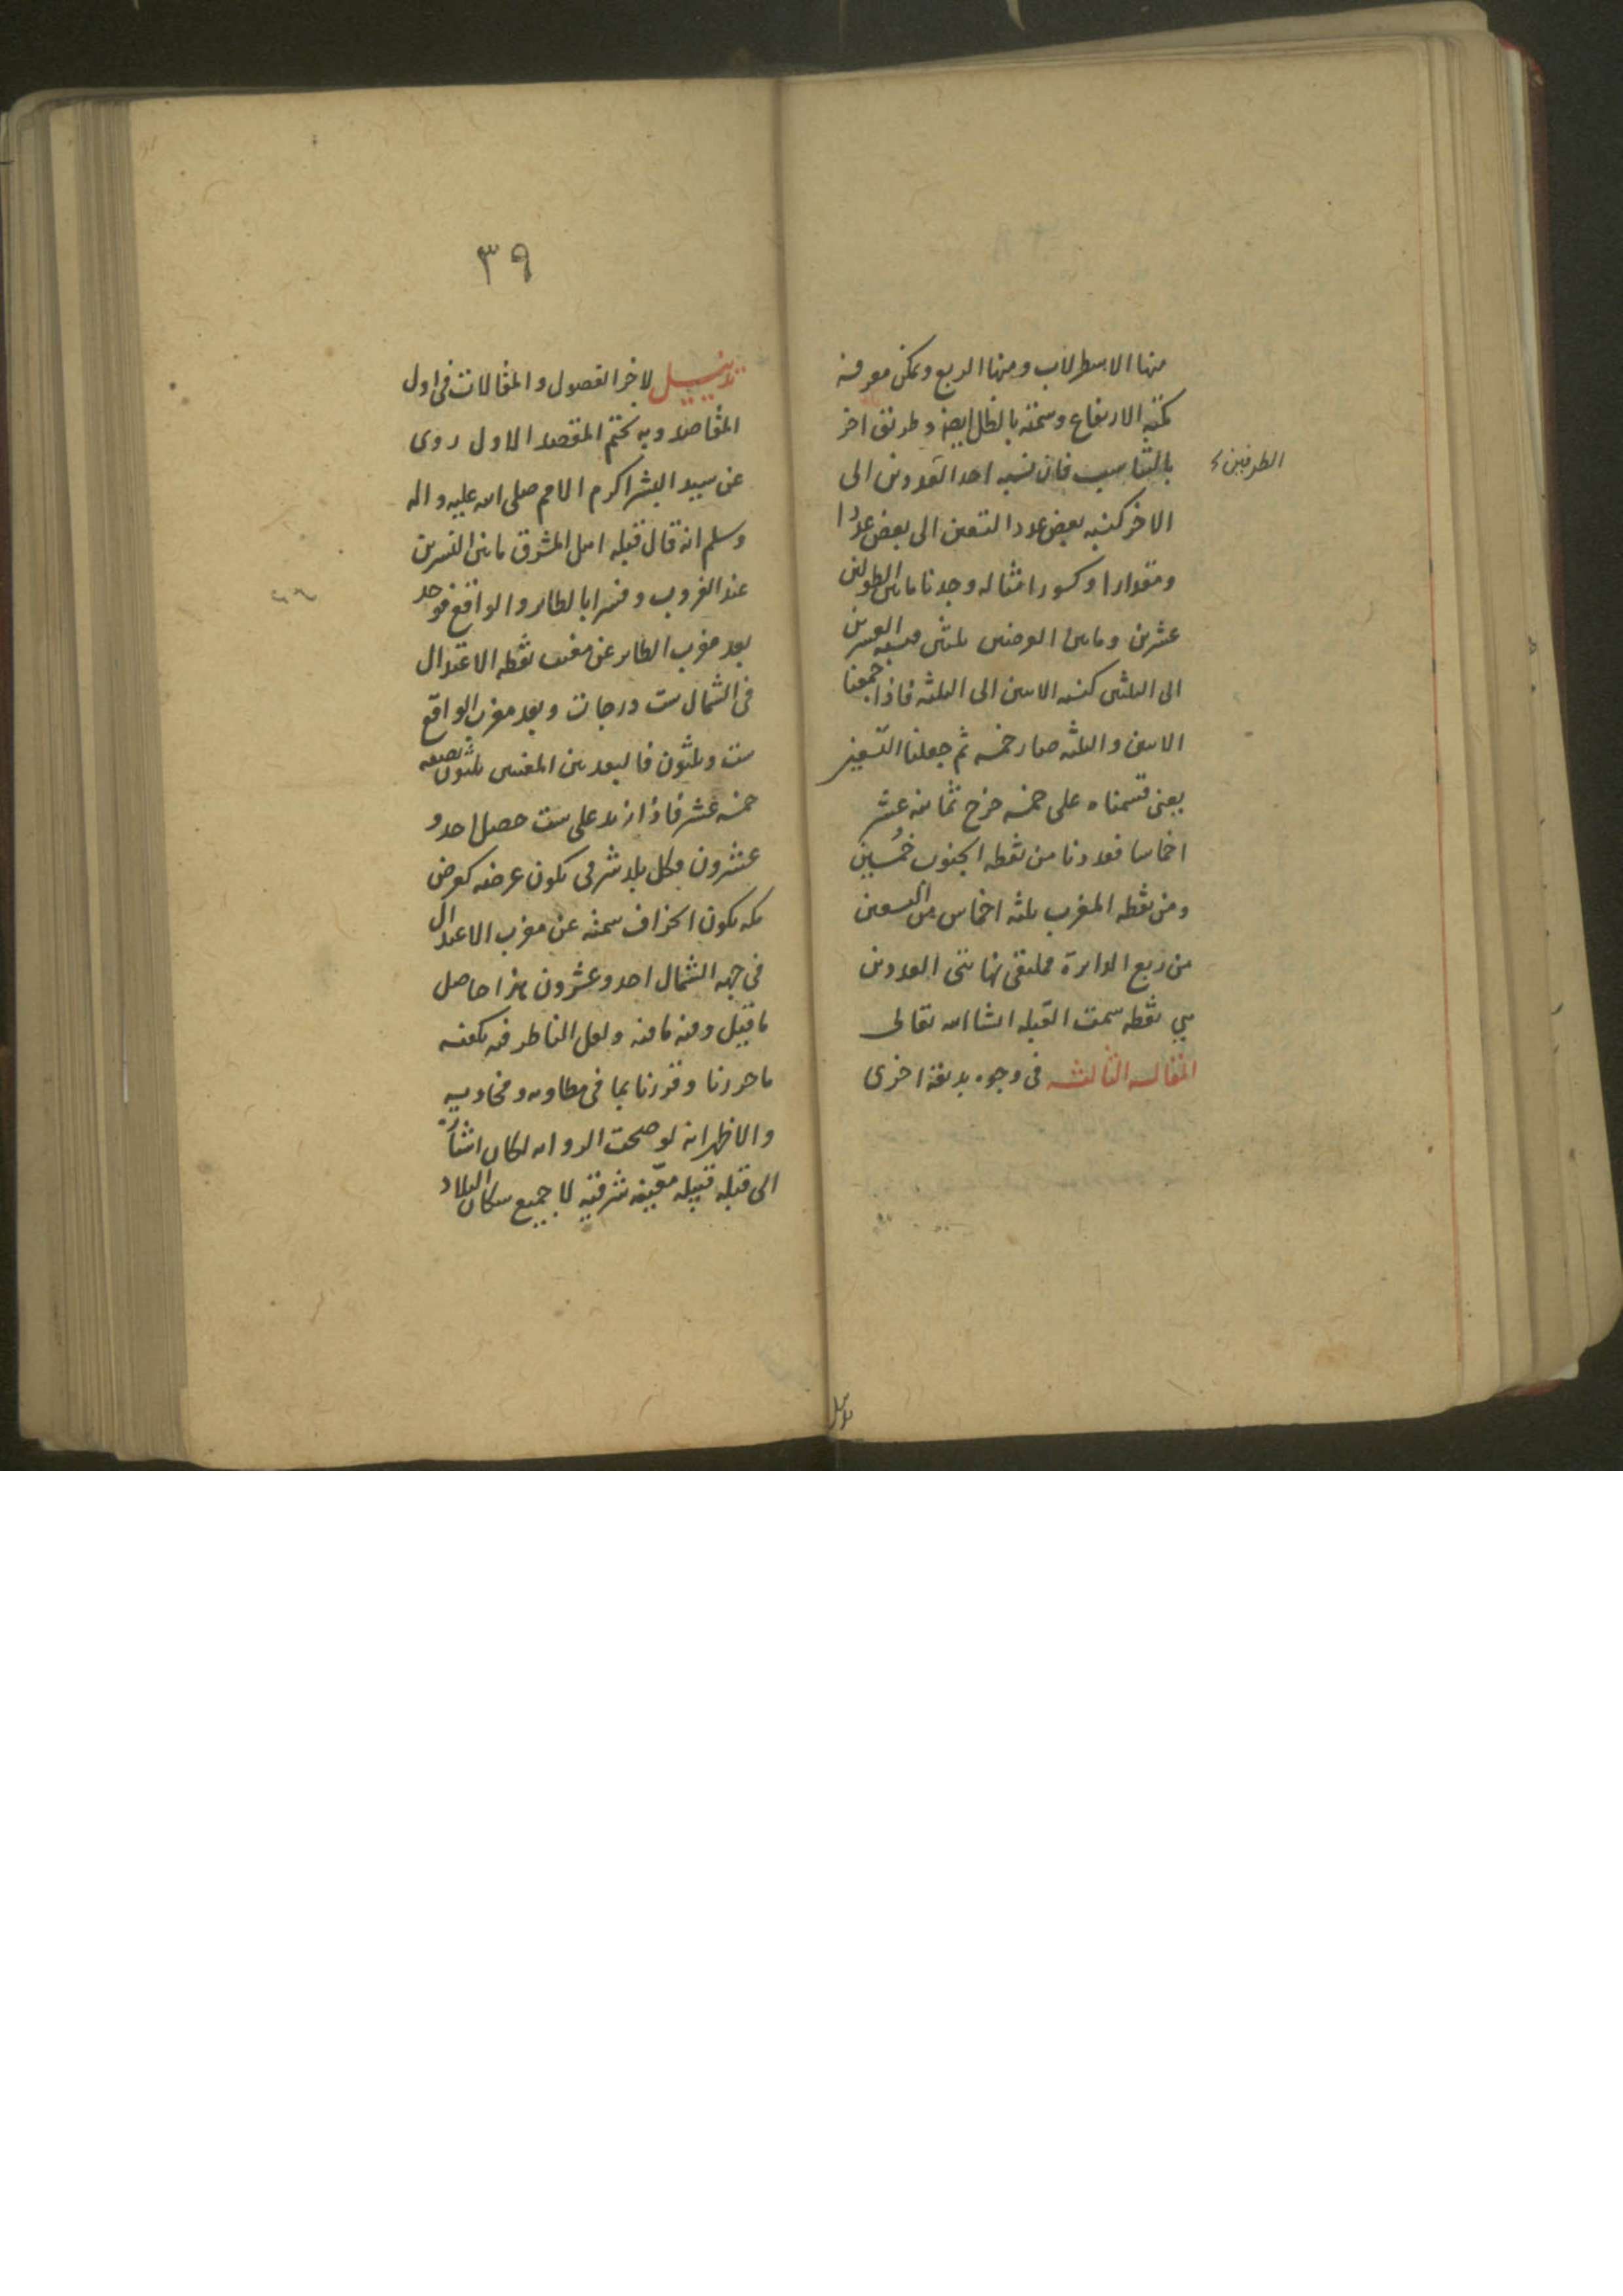 منها الاسطرلاب ومنها الربع ويمكن معرفة
كمية الارتفاع وسمته بالظل ايضا وطريق اخر
بالتناسب فان نسبه احد العددين الى
الطرفين
الاخر كنسبه بعض عدد التسعين الى بعض عددا
ومقدارا وكسورا مثاله وجدنا مابين الطولين
عشرين ومابين العرضين ثلثين فنسبه العشرين
الى الثلثين كنسبه الاثنين الى الثلثه فاذا جمعنا
الاثنين والثلثه صار خمسه ثم جعلنا التسعين
يعنى قسمناه على خمسه خرج ثمانيه عشر
اخماسا فعددنا من نقطه الجنوب خُمسين
ومن نقطه المغرب ثلثه اخماس من التسعين
من ربع الدايرة فملتقى نهايتى العددين
هي نقطه سمت القبله انشا الله تعالى
المقاله الثالثه فى وجوه بديعة اخرى
تذييل
٣٩
تذييل لاخر الفصول والمقالات فى اول
المقاصد وبه نختم المقصد الاول روى
عن سيد البشر اكرم الامم صلى الله عليه واله
وسلم انه قال قبله اهل المشرق مابين النسرين
عند الغروب وفسرا بالطاير والواقع فوجد
بعد مغرب الطاير عن مغرب نقطه الاعتدال
فى الشمال ست درجات وبعد مغرب الواقع
ست وثلثون فالبعد بين المغربين ثلثون نصفه
خمسه عشر فاذا زيد على ست حصل احد و
عشرون فكل بلد شرقى يكون عرضه كعرض
مكه يكون انحراف سمته عن مغرب الاعتدال
فى جهه الشمال احد وعشرون هذا حاصل
ما قيل وفيه ما فيه ولعل الناظر فيه يكفيه
ما حررنا وقررنا بما فى مطاويه ومحاويه
والاظهر انه لو صحت الروايه لكان اشارة
الى قبله قبيله معينه شرقيه لا جميع سكان البلاد